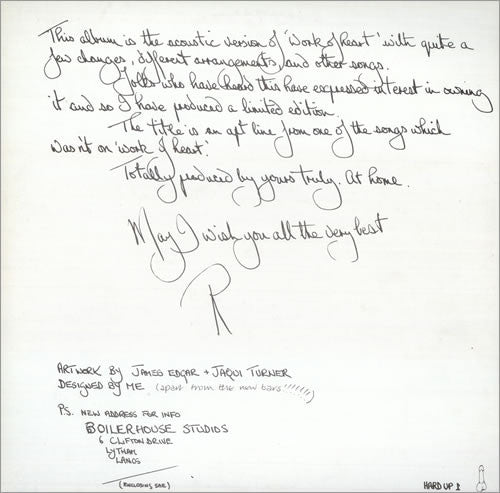 This album is the acoustic version of 'Work of heart' with quite a
few changes, different arrangements, and other songs.
Folks who have heard this have expressed interest in owning
it and so I have produced a limited edition.
The title is an apt line from one of the songs which
wasn't on 'work of heart'.
Totally produced by yours truly. At home.
May I wish you all the very best
R
ARTWORK BY JAMES EDGAR + JAQUI TURNER
DESIGNED BY ME (apart from the new bars !!!!!!)
P.S. NEW ADDRESS FOR INFO
BOILERHOUSE STUDIOS
6 CLIFTON DRIVE
LYTHAM
LANCS
(ENCLOSING SAE)
HARD UP 1